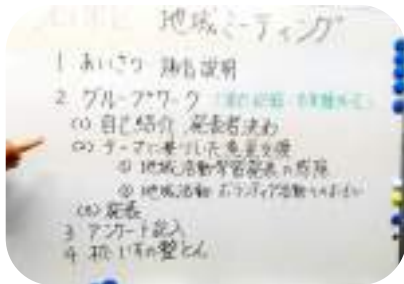 地域ミーティング
1 あいさつ 趣旨説明
2 グループワーク
(1) 自己紹介 発表者決め
(2) テーマに基づした意見交換
① 地域活動学習発表の感想
② 地域活動 ボランティア活動
(3) 発表
3 アンケート記入
4 机 いすの整とん